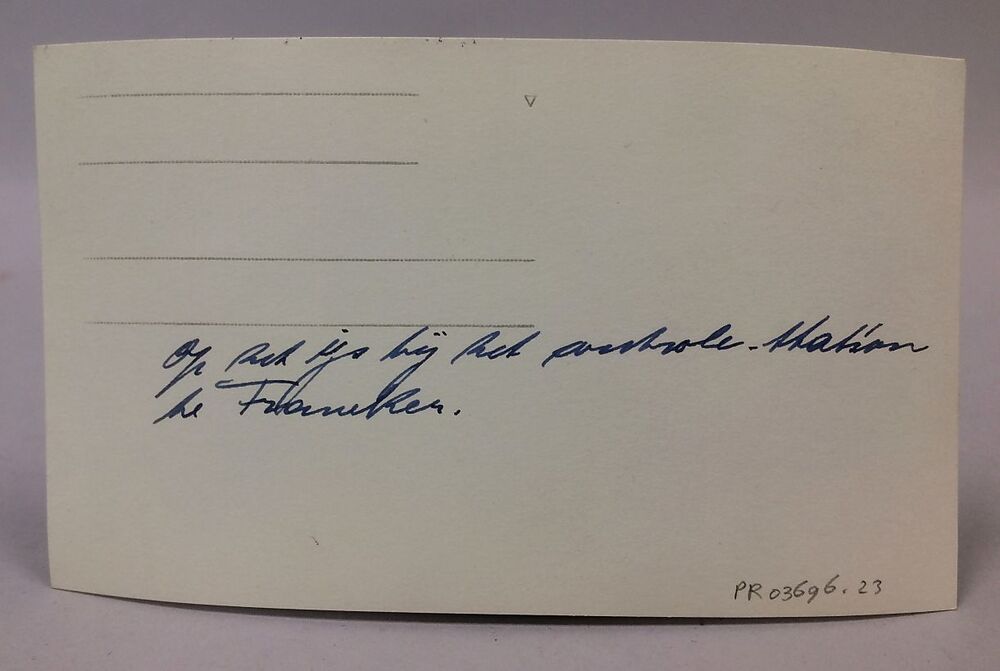 op het ijs bij het controle-station
te Franeker.
PR03696.23